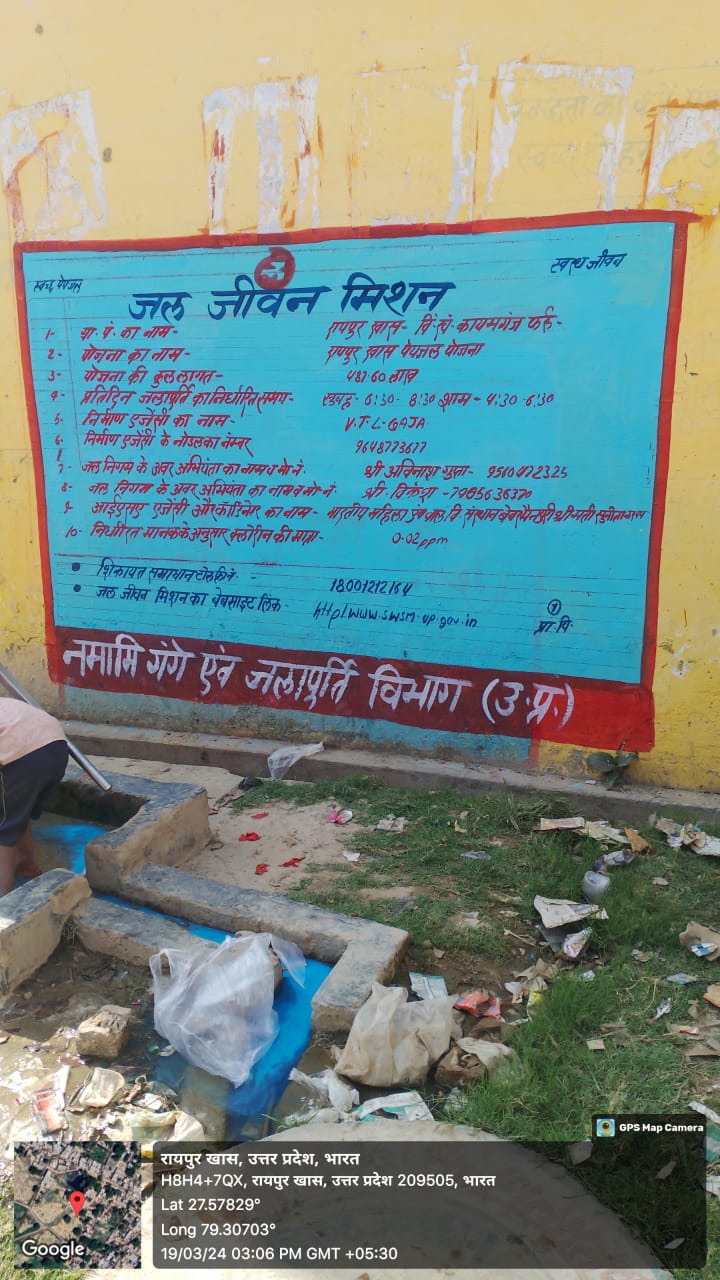 स्वच्छ पेयजल
स्वस्थ जीवन
3
जल जीवन मिशन
1- ग्रा.पं. का नाम- रायपुर खास- वि.खं. कायमगंज फर्रु-
2- योजना का नाम- रायपुर खास पेयजल योजना
3- योजना की कुल लागत- 487.60 लाख
4- प्रतिदिन जलापूर्ति का निर्धारित समय- सुबह- 6:30- 8:30 शाम- 4:30-6:30
5- निर्माण एजेंसी का नाम- V.T.L-GAJA
6- निर्माण एजेंसी के नोडल का नम्बर 9648773677
7- जल निगम के अवर अभियंता का नाम व मो नं. श्री अविनाश गुप्ता- 9560472325
8- जल निगम के अवर अभियंता का नाम व मो नं. श्री- विकेश -7905636370
9- आईएसए एजेंसी और कॉडिनेटर का नाम- भारतीय महिला एवं बाल वि. संस्थान श्री श्रीमती
10- निर्धारित मानक के अनुसार क्लोरीन की मात्रा- 0.02ppm
• शिकायत समाधान टोल फ्री नं. - 18001212164
• जल जीवन मिशन का वेबसाइट लिंक- http/www.swsm-up.gov.in
1
प्रा.वि.
नमामि गंगे एंव जलापूर्ति विभाग (उ.प्र.)
GPS Map Camera
रायपुर खास, उत्तर प्रदेश, भारत
H8H4+7QX, रायपुर खास, उत्तर प्रदेश 209505, भारत
Lat 27.57829°
Long 79.30703°
19/03/24 03:06 PM GMT +05:30
Google